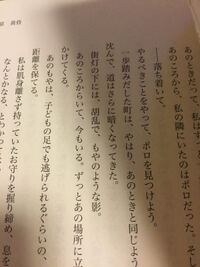 あのときだって、私の隣にいたのはポロだった。そし
あのころから、
――落ち着いて。
やるべきことをやって、ポロを見つけよう。
一歩踏みだした町は、やはり、あのときと同じよう
沈んで、道はさらに暗くなってきた。
街灯の下には、胡乱で、もやのような影。
あのころからいて、今もいる。ずっとあの場所に立
かけてくる。
あのもやは、子どもの足でも逃げられるぐらいの、
距離を保てる。
私は肌身離さず持っていたお守りを握り締め、息を
なんとかなる、